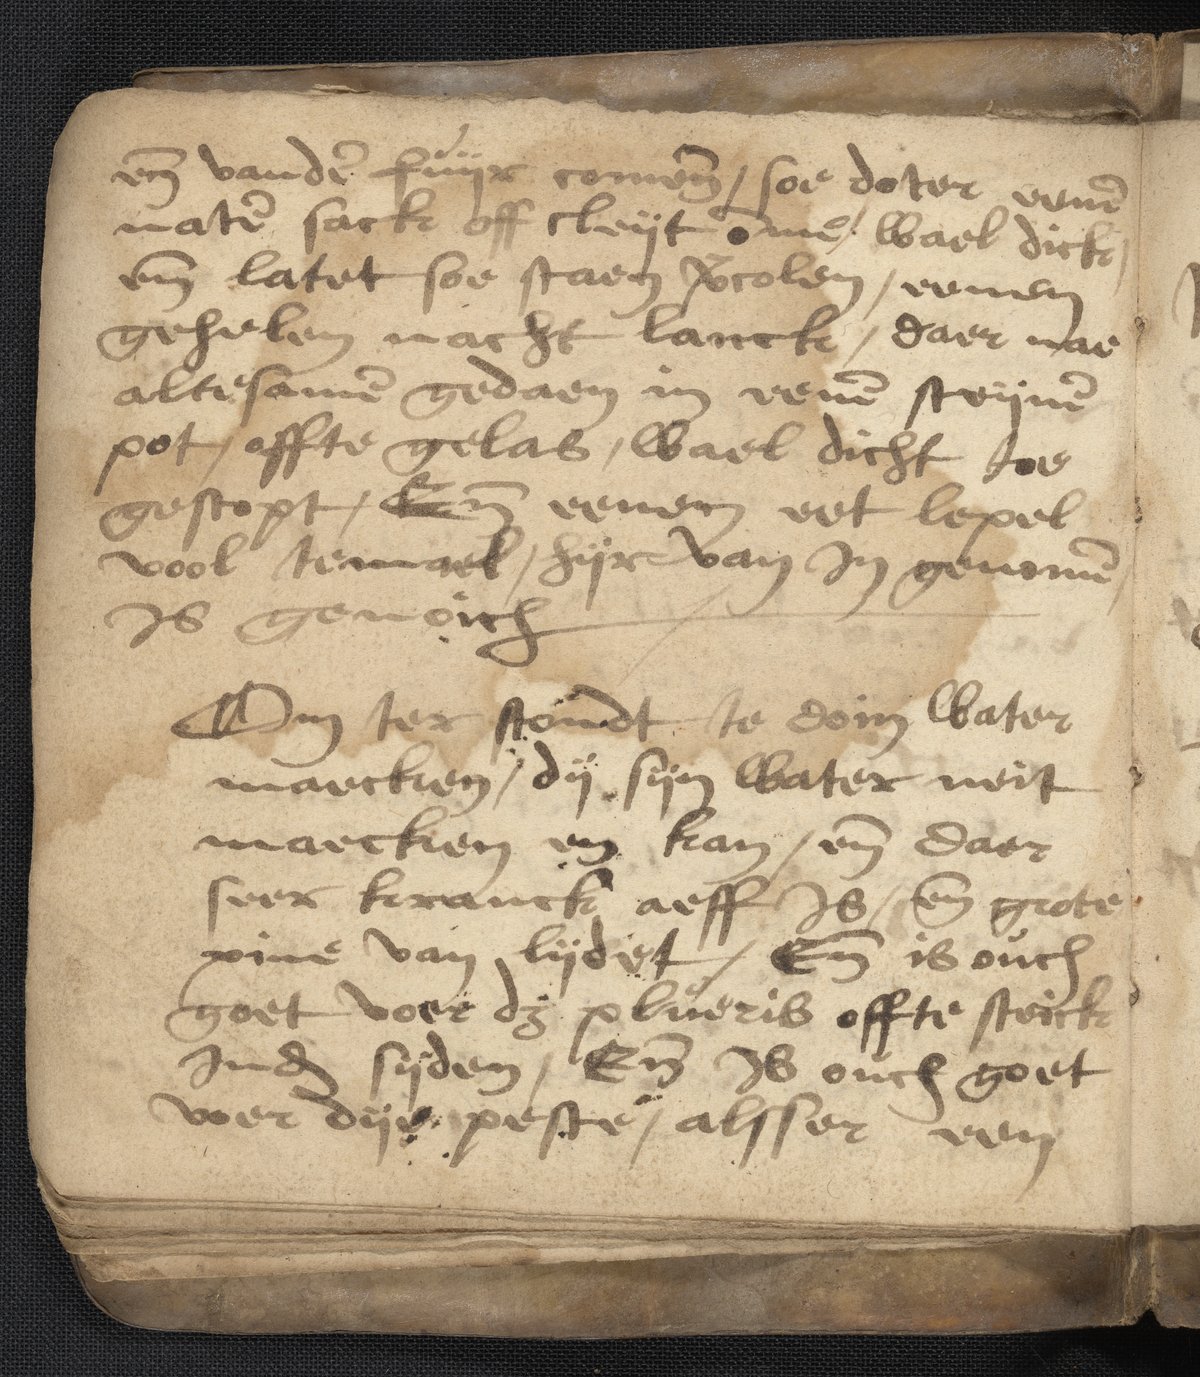 en̄ vandē fuijr comen̄ / soe doter eenē
natē sack off cleijt omē / wael dick /
en̄ latet soe staen v̄colen / eenen
gehelen nacht lanck / daer nae
altesamē gedaen in eenē steijnē
pot / offte gelas / wael dicht toe
gestopt / En̄ eenen eet lepel
vool temael / hijr van In genomē /
Is genoich
Om ter stondt te doin water
maecken / dij sijn water neit
maecken en kan / en̄ daer
seer kranck aeff Is / en̄ grote
pine van lijdet / En̄ is ouch
goet voer dʒ plueris offte steick
Ind sijden / En̄ Is ouch goet
voer dije peste / alsser een